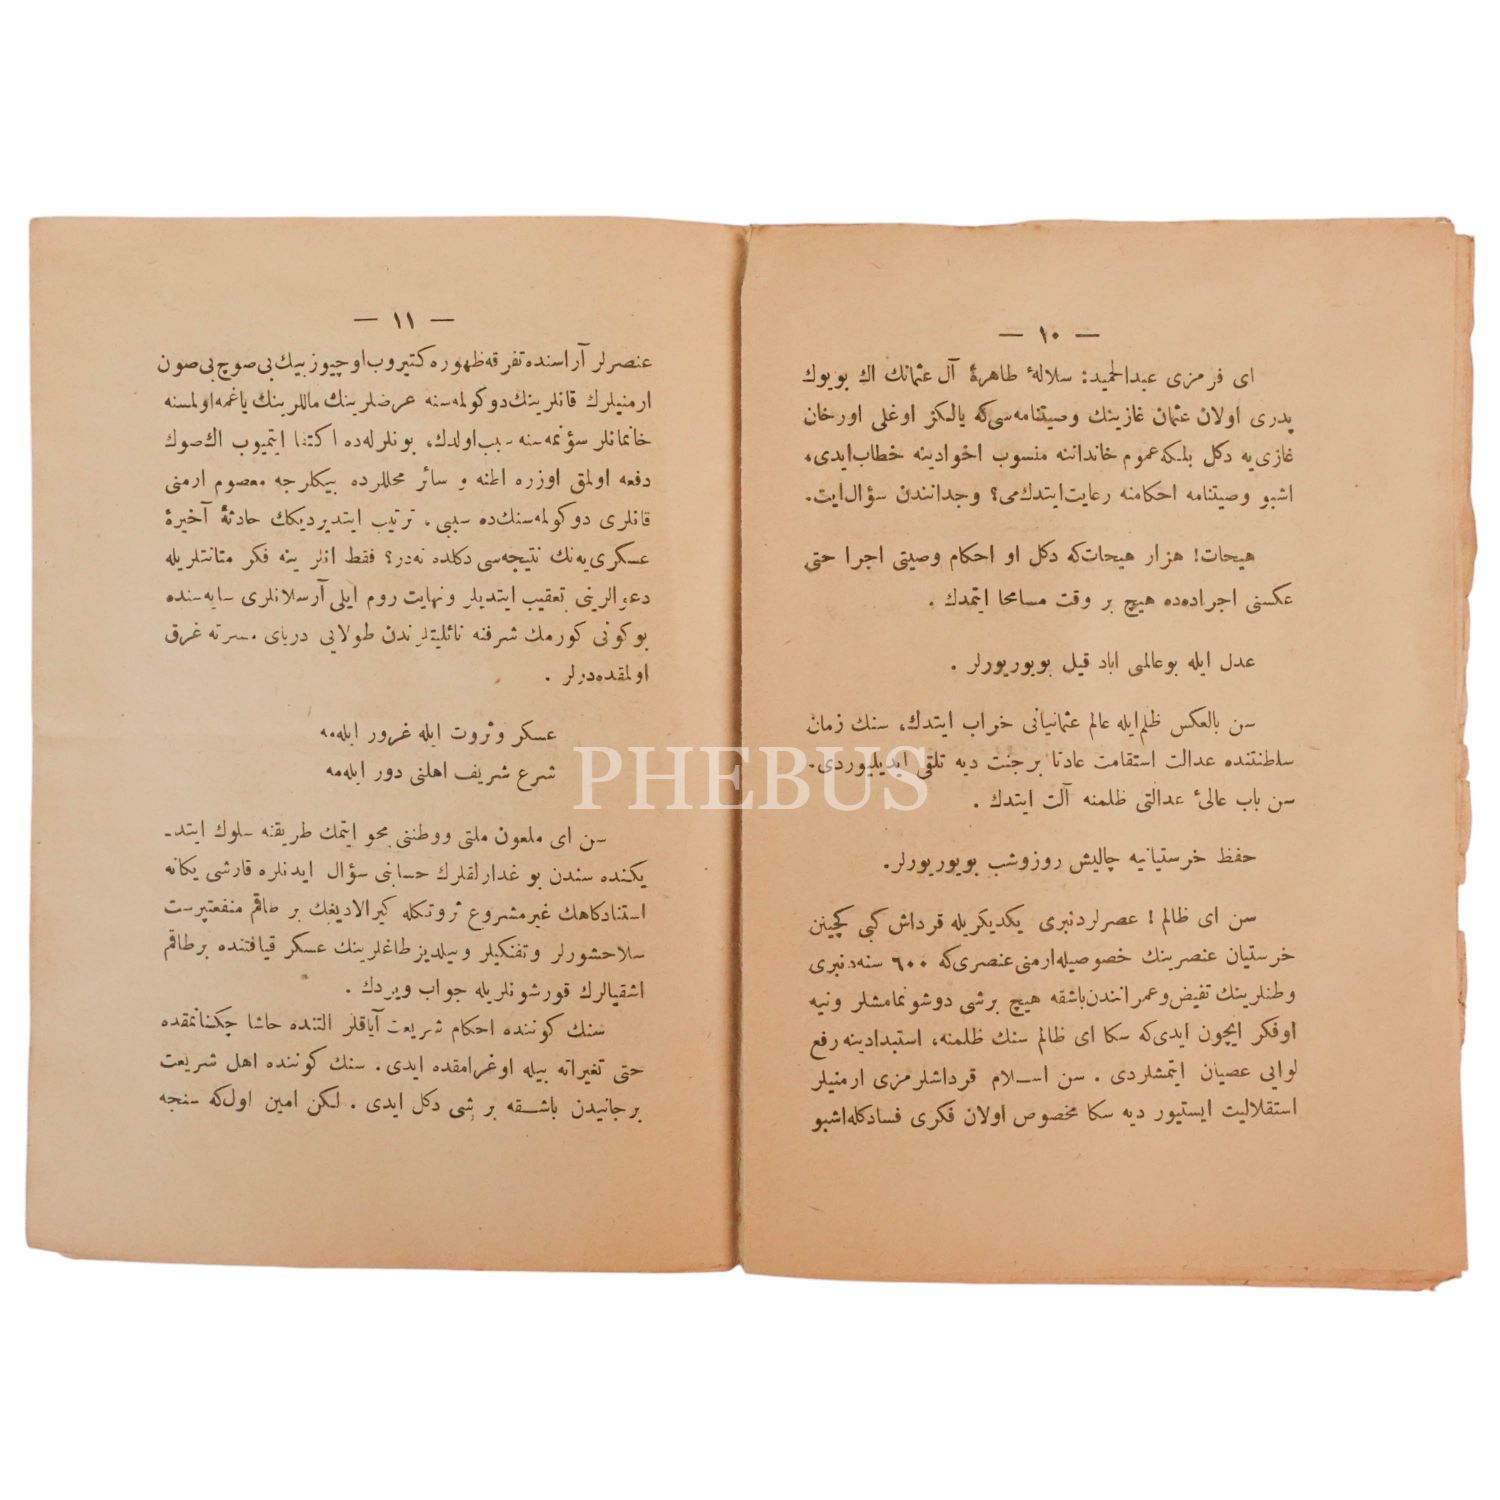 — ١٠ —
ای قرمزی عبدالحمید: سلالهٔ طاهرهٔ آل عثمانك اك بویوك
پدری اولان عثمان غازینك وصیتنامه‌سی که یالکز اوغلی اورخان
غازی یه دکل بلکه عموم خانداننه منسوب اخوادینه خطاب ایدی،
اشبو وصیتنامه احکامنه رعایت ایتدك می؟ وجدانندن سؤال ایت.
هیحات! هزار هیحات که دکل او احکام وصیتی اجرا حتی
عکسنی اجراده‌ده هیچ بر وقت مسامحا ایتمدك .
عدل ایله بو عالمی اباد قیل بویوریورلر .
سن بالعکس ظلم ایله عالم عثمانیانی خراب ایتدك، سنك زمان
سلطنتنده عدالت استقامت عادتا بر جنت دیه تلقی ایدیلیوردی.
سن باب عالیٔ عدالتی ظلمنه آلت ایتدك .
حفظ خرستیانیه چالیش روز و شب بویوریورلر.
سن ای ظالم! عصرلردنبری یکدیکریله قرداش کبی کچینن
خرستیان عنصرینك خصوصیله ارمنی عنصری که ٦٠٠ سنه‌دنبری
وطنلرینك تفیض و عمرانندن باشقه هیچ برشی دوشونمامشلر ونیه
او فکر ایچون ایدی که سکا ای ظالم سنك ظلمنه، استبدادینه رفع
لوایی عصیان ایتمشلردی . سن اسلام قرداشلرمزی ارمنیلر
استقلالیت ایستیور دیه سکا مخصوص اولان فکری فسادکله اشبو
— ١١ —
عنصرلر آراسنده تفرقه ظهوره کتیروب اوچیوز بیك بی صوچ بی صون
ارمنیلرك قانلرینك دوکولمه‌سنه عرضلرینك ماللرینك یاغمه اولمسنه
خانمانلر سؤنمه‌سنه سبب اولدك، بونلرله‌ده اکتفا ایتمیوب اك صوك
دفعه اولمق اوزره اطنه و سائر محللرده بیکلرجه معصوم ارمنی
قانلری دوکولمه‌سنك‌ده سببی، ترتیب ایتدیردیکك حادثهٔ آخیرهٔ
عسکری‌یه‌نك نتیجه‌سی دکلده نه‌در؟ فقط انلر ینه فکر متانتلریله
دعوالرینی تعقیب ایتدیلر و نهایت روم ایلی آرسلانلری سایه‌سنده
بو کونی کورمك شرفنه نائلیتلرندن طولایی دریای مسرته غرق
اولمقده‌درلر .
عسکر و ثروت ایله غرور ایله‌مه
شرع شریف اهلنی دور ایله‌مه
سن ای ملعون ملتی و وطننی محو ایتمك طریقنه سلوك ایتد-
یکنده سندن بو غدارلقلرك حسابنی سؤال ایدنلره قارشی یکانه
استنادکاهك غیر مشروع ثروتکله کیرالادیغك بر طاقم منفعتپرست
سلاحشورلر و تفنکیلر و ییلدیز طاغلرینك عسکر قیافتنده بر طاقم
اشقیالرك قورشونلریله جواب ویردك .
سنك کوننده احکام شریعت آیاقلر التنده حاشا چکنانمقده
حتی تغیراته بیله اوغرامقده ایدی . سنك کوننده اهل شریعت
بر جانیدن باشقه بر شی دکل ایدی . لکن امین اول که سنجه
PHEBUS